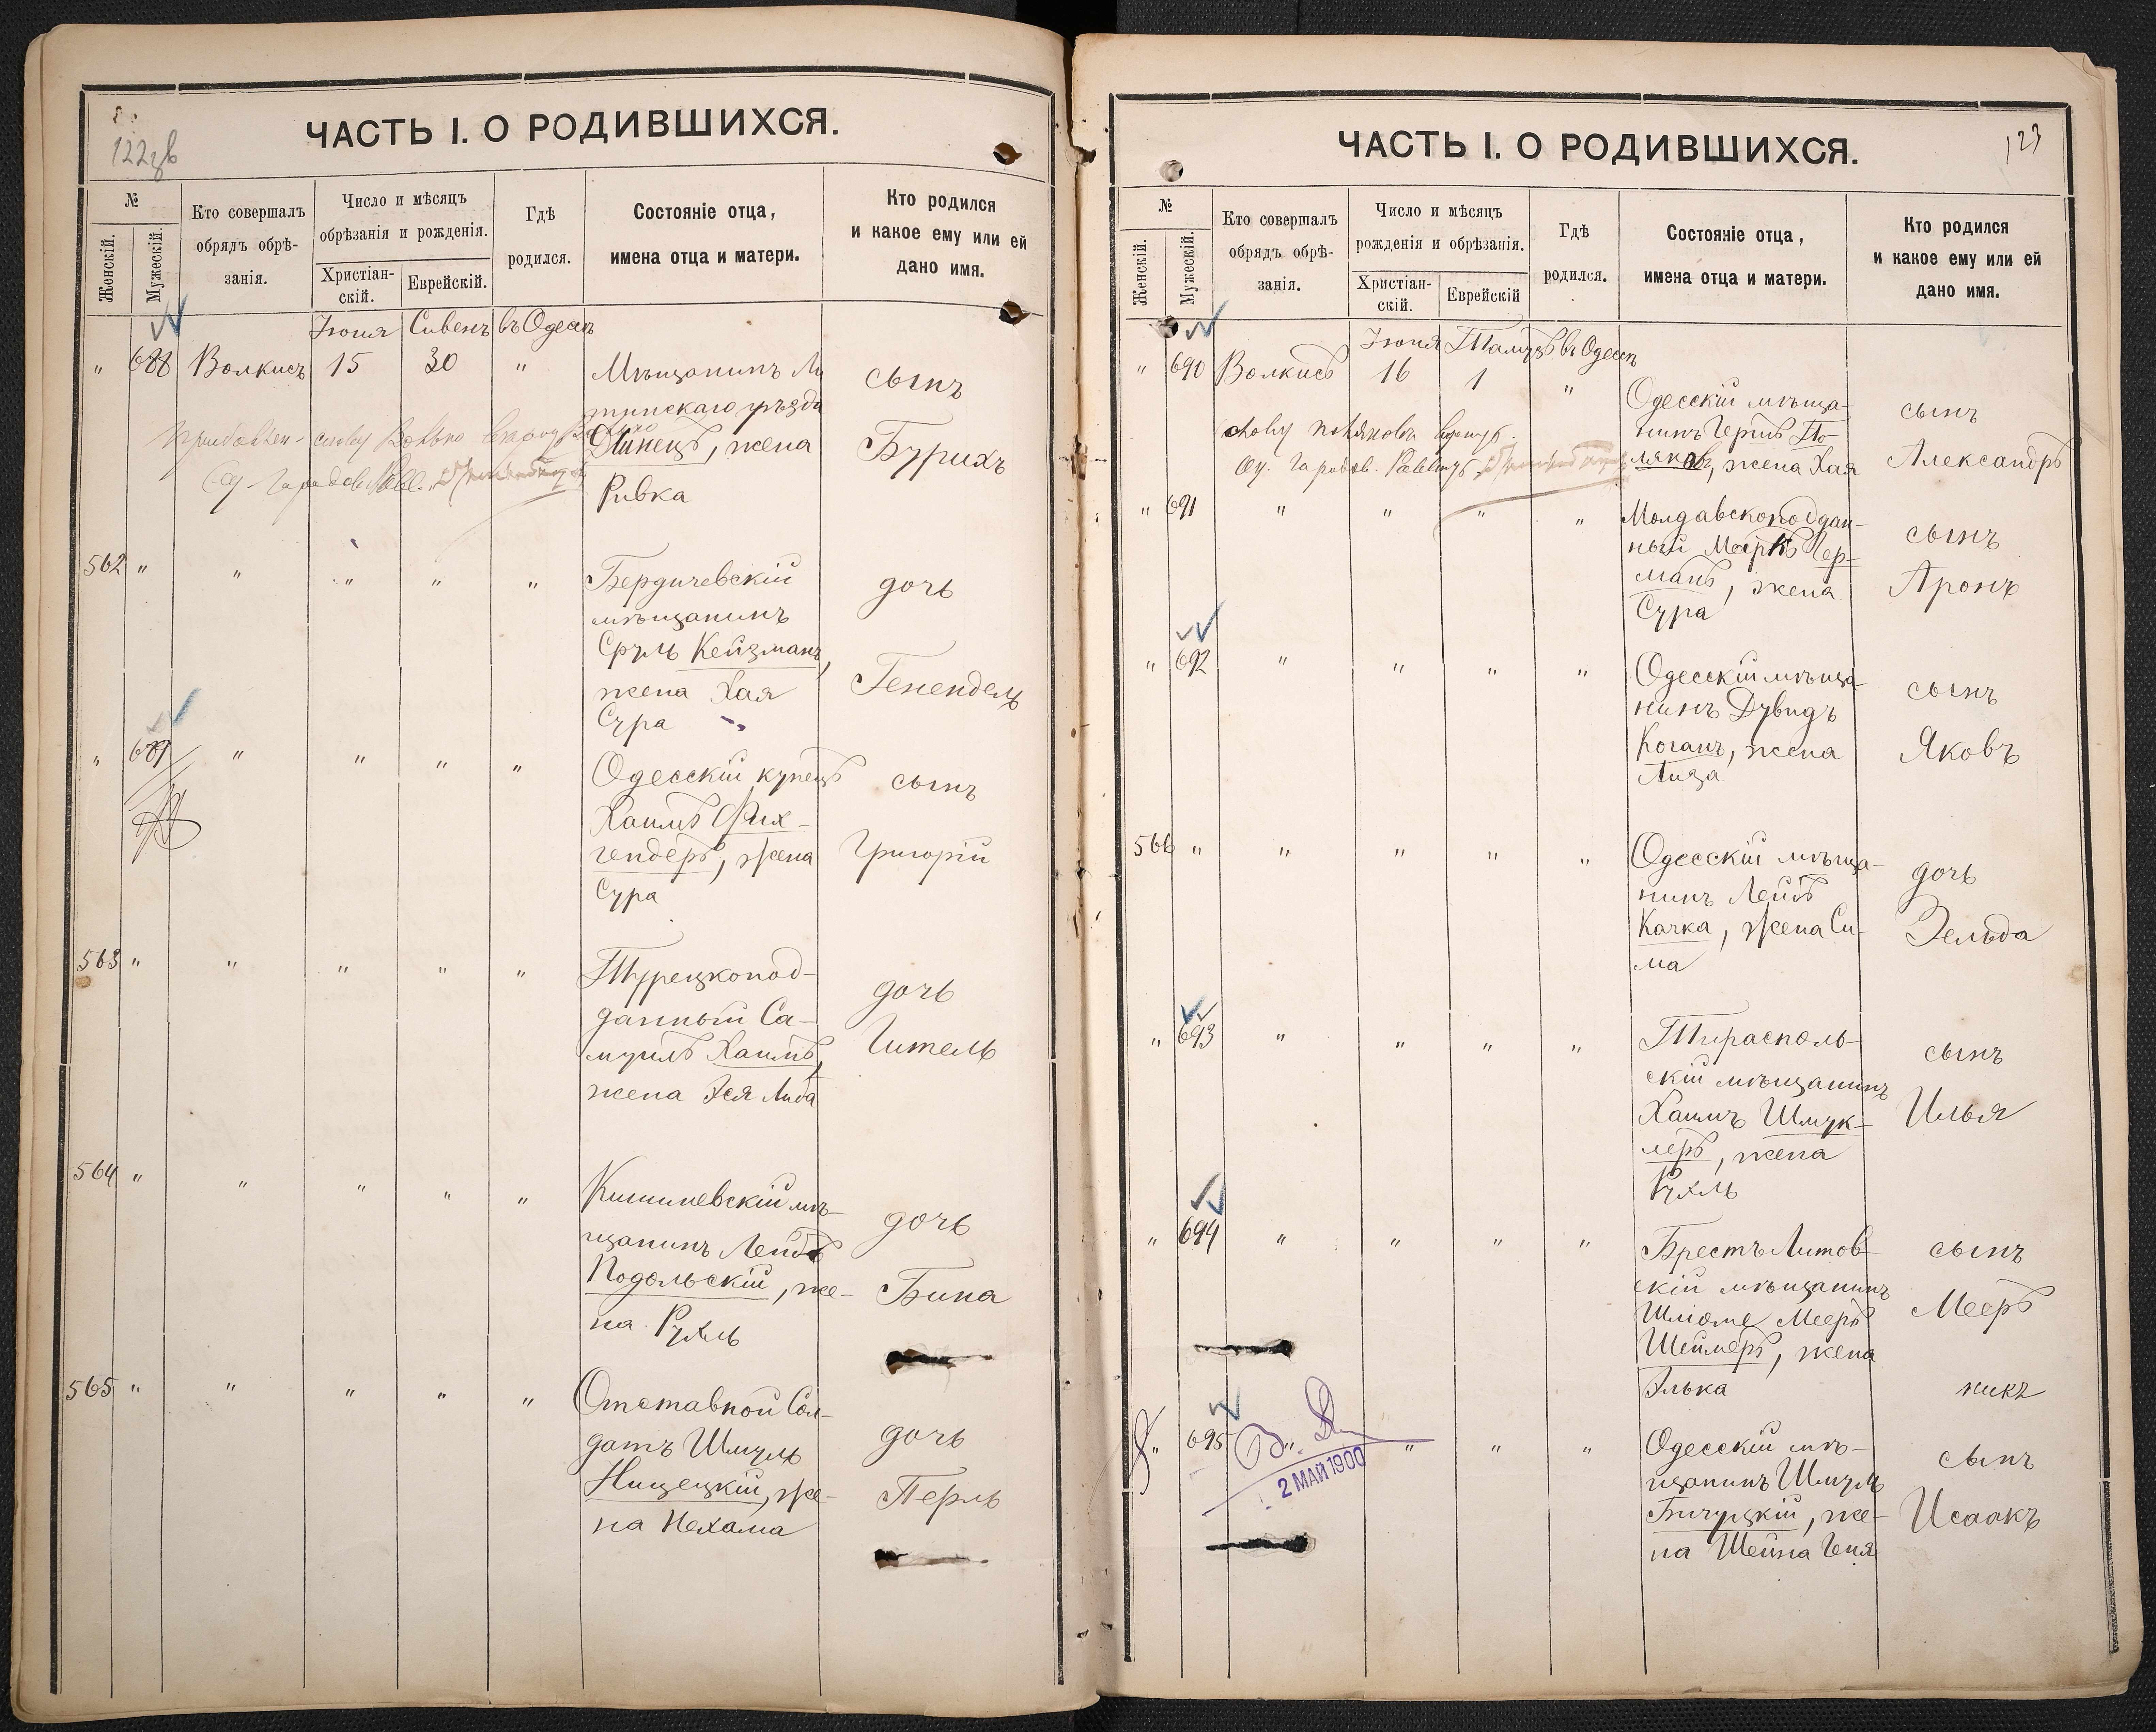 122
ЧАСТЬ I. О РОДИВШИХСЯ.
№
Женскій.
Мужескій.
Кто совершалъ
обрядъ обрѣ-
занія.
Число и мѣсяцъ
обрѣзанія и рожденія.
Христіан-
скій.
Еврейскій.
Гдѣ
родился.
Состояніе отца,
имена отца и матери.
Кто родился
и какое ему или ей
дано имя.
Іюня Сивенъ въ Одессѣ
" 688 Волкисъ 15 30 " Мѣщанинъ Ли
тинскаго уѣзда
жена
Ривка
сынъ
Бурихъ
562 " " " " " Бердичевскій
мѣщанинъ
Сруль Кейзманъ,
жена Хая
Сура
дочь
Генендель
" 689 " " " " Одесскій купецъ
Хаимъ Фих-
тендеръ, жена
Сура
сынъ
Григорій
563 " " " " " Турецкопод-
данный Са-
муилъ Хаимъ,
жена Эся Либа
дочь
Гитель
564 " " " " " Кишиневскій мѣ-
щанинъ Лейбъ
Подольскій, же-
на Рухль
дочь
Бина
565 " " " " " Отставной Сол-
датъ Шмуль
Нищецкій, же-
на Нехама
дочь
Перль
123
ЧАСТЬ I. О РОДИВШИХСЯ.
№
Женскій.
Мужескій.
Кто совершалъ
обрядъ обрѣ-
занія.
Число и мѣсяцъ
рожденія и обрѣзанія.
Христіан-
скій.
Еврейскій
Гдѣ
родился.
Состояніе отца,
имена отца и матери.
Кто родился
и какое ему или ей
дано имя.
Іюня Тамузъ въ Одессѣ
" 690 Волкисъ 16 1 " Одесскій мѣща-
нинъ Гершъ По-
ляковъ, жена Хая
сынъ
Александръ
" 691 " " " " Молдавскоподдан-
ный Меерко Гер-
манъ, жена
Сура
сынъ
Аронъ
" 692 " " " " Одесскій мѣща-
нинъ Дувидъ
Коганъ, жена
Лиза
сынъ
Яковъ
566 " " " " " Одесскій мѣща-
нинъ Лейбъ
Качка, жена Си-
ма
дочь
Зельда
" 693 " " " " Тирасполь-
скій мѣщанинъ
Хаимъ Шмук-
леръ, жена
Рухль
сынъ
Илья
" 694 " " " " Брестъ Литов-
скій мѣщанинъ
Шліоме Мееръ
Шеймеръ, жена
Элька
сынъ
Мееръ
" 695 " " " " Одесскій мѣ-
щанинъ Шмуль
Бичуцкій, же-
на Шейна Геня
сынъ
Исаакъ
2 МАЙ 1900